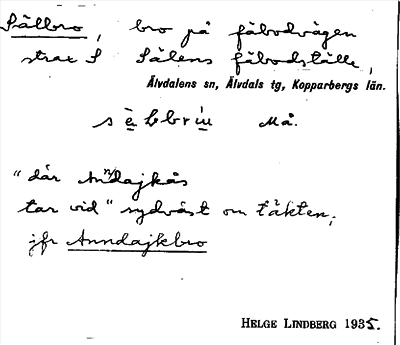 Sälbro, bro på fäbodvägen
strax S Sälens fäbodställe,
Älvdalens sn, Älvdals tg, Kopparbergs län.
Må.
"där Anndajkås
tar vid" sydväst om täkten;
jfr Anndajkbro
HELGE LINDBERG 1935.